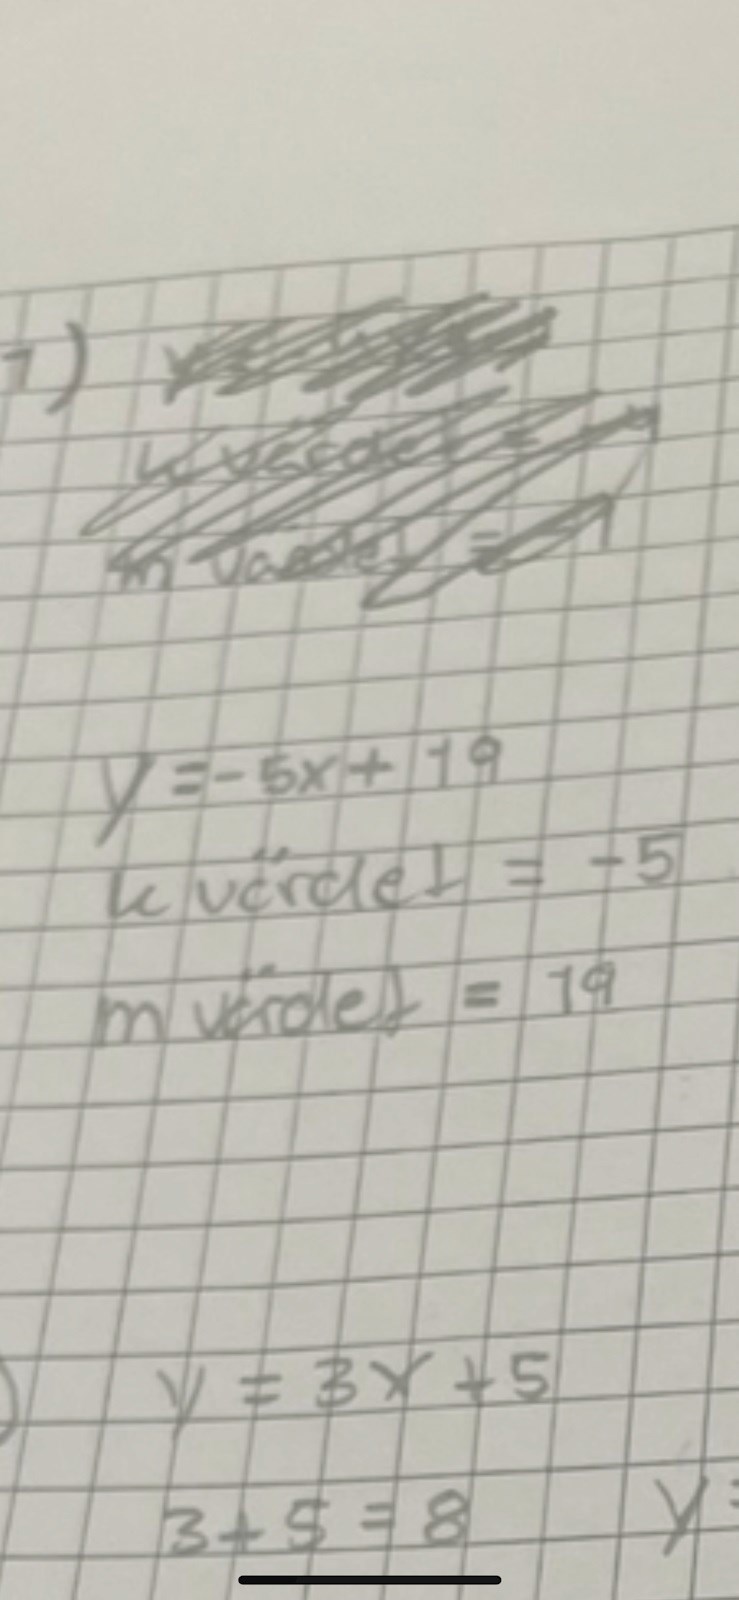 1)
k värdet =
m värdet =
y = -5x + 19
k värdet = -5
m värdet = 19
) y = 3x + 5
3 + 5 = 8 y =